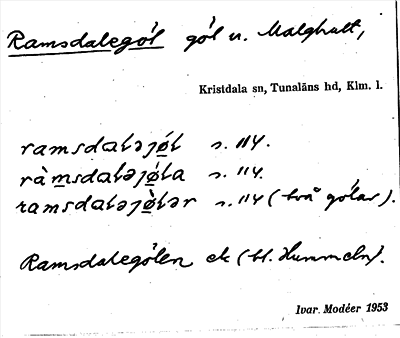 Ramsdalegöl göl n. Malghult,
Kristdala sn, Tunaläns hd, Klm. l.
ramsdaləjö̱l s. 114.
ràm̱sdaləjö̱̀la s. 114.
ramsdaləjö̱̀lər s. 114 (två gölar).
Ramsdalegölen ek (bl. Hummeln).
Ivar. Modéer 1953